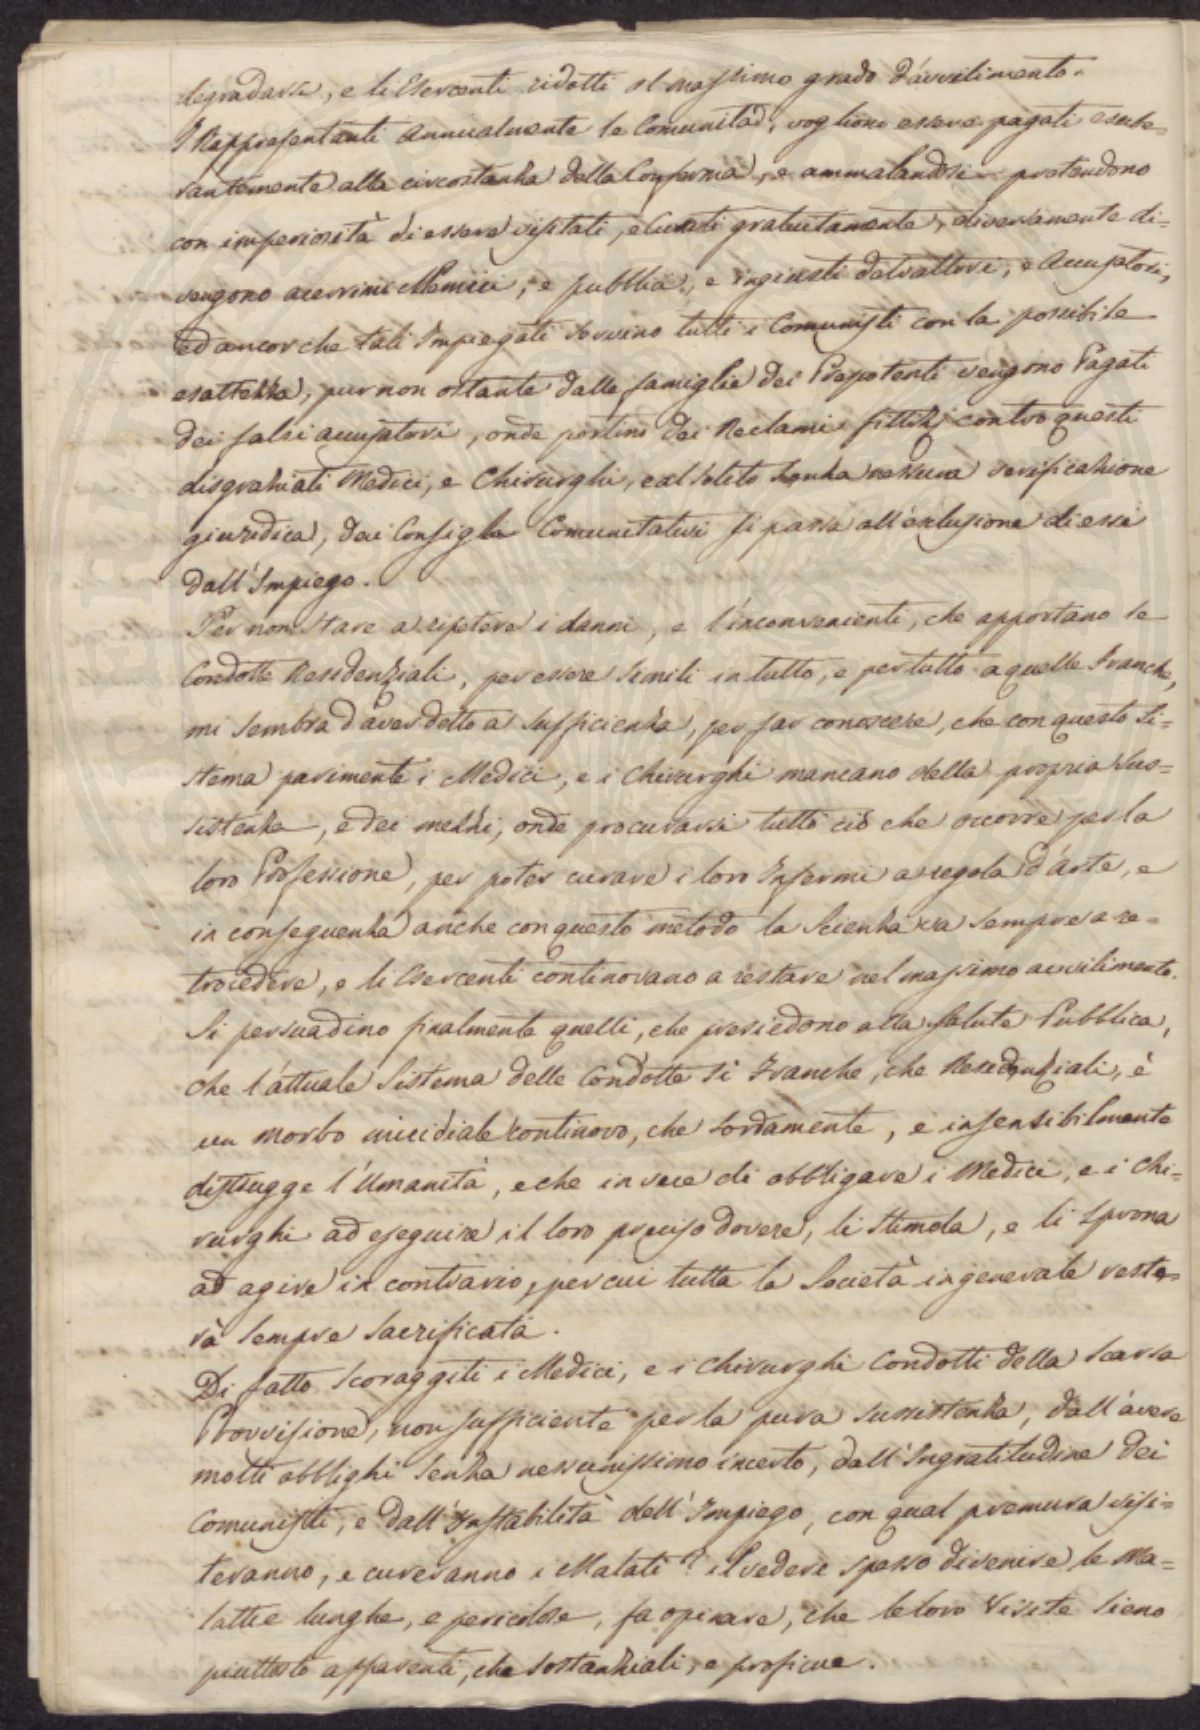 degradarsi, e li Esercenti ridotti al massimo grado d'avvilimento.
I Rappresentanti annualmente le Comunità, vogliono essere pagati esube=
rantemente alla circostanza della Conferma, e ammalandosi pretendono
con imperiosità di essere visitati, e curati gratuitamente, diversamente di=
vengono acerrimi Nemici, e pubblici, e ingiusti detrattori, e Accusatori,
ed ancorche tali Impiegati servino tutti i Comunisti con la possibile
esattezza, pur non ostante dalle famiglie dei Prepotenti vengono Pagati
dei falsi accusatori, onde portino dei Reclami fittizj contro questi
disgraziati Medici, e Chirurghi, e al solito senza nessuna verificazione
giuridica, dai Consigli Comunitativi si passa all'esclusione di essi
dall'Impiego.
Per non stare a ripetere i danni, e l'inconvenienti, che apportano le
Condotte Residenziali, per essere simili in tutto, e per tutto a quelle Franche,
mi sembra d'aver detto a sufficienza, per far conoscere, che con questo Si=
stema parimente i Medici, e i Chirurghi mancano della propria Sus=
sistenza, e dei mezzi, onde procurarsi tutto ciò che occorre per la
loro Professione, per poter curare i loro Infermi a regola d'Arte, e
in conseguenza anche con questo metodo la Scienza va sempre a re=
trocedere, e li Esercenti continovano a restare nel massimo avvilimento.
Si persuadino finalmente quelli, che presiedono alla Salute Pubblica,
che l'attuale Sistema delle Condotte sì Franche, che Residenziali, è
un morbo micidiale continovo, che sordamente, e insensibilmente
distrugge l'Umanità, e che in vece di obbligare i Medici, e i Chi=
rurghi ad eseguire il loro preciso dovere, li stimola, e li sprona
ad agire in contrario, per cui tutta la Società in generale reste=
rà sempre sacrificata.
Di fatto scoraggiti i Medici, e i Chirurghi Condotti della scarsa
Provvisione, non sufficiente per la pura sussistenza, dall'avere
molti obblighi senza nessunissimo incerto, dall'Ingratitudine dei
Comunisti, e dall'Instabilità dell'Impiego, con qual premura visi=
teranno, e cureranno i Malati? il vedere spesso divenire le Ma=
lattie lunghe, e pericolose, fa opinare, che le loro Visite sieno
piuttosto apparenti, che sostanziali, e proficue.